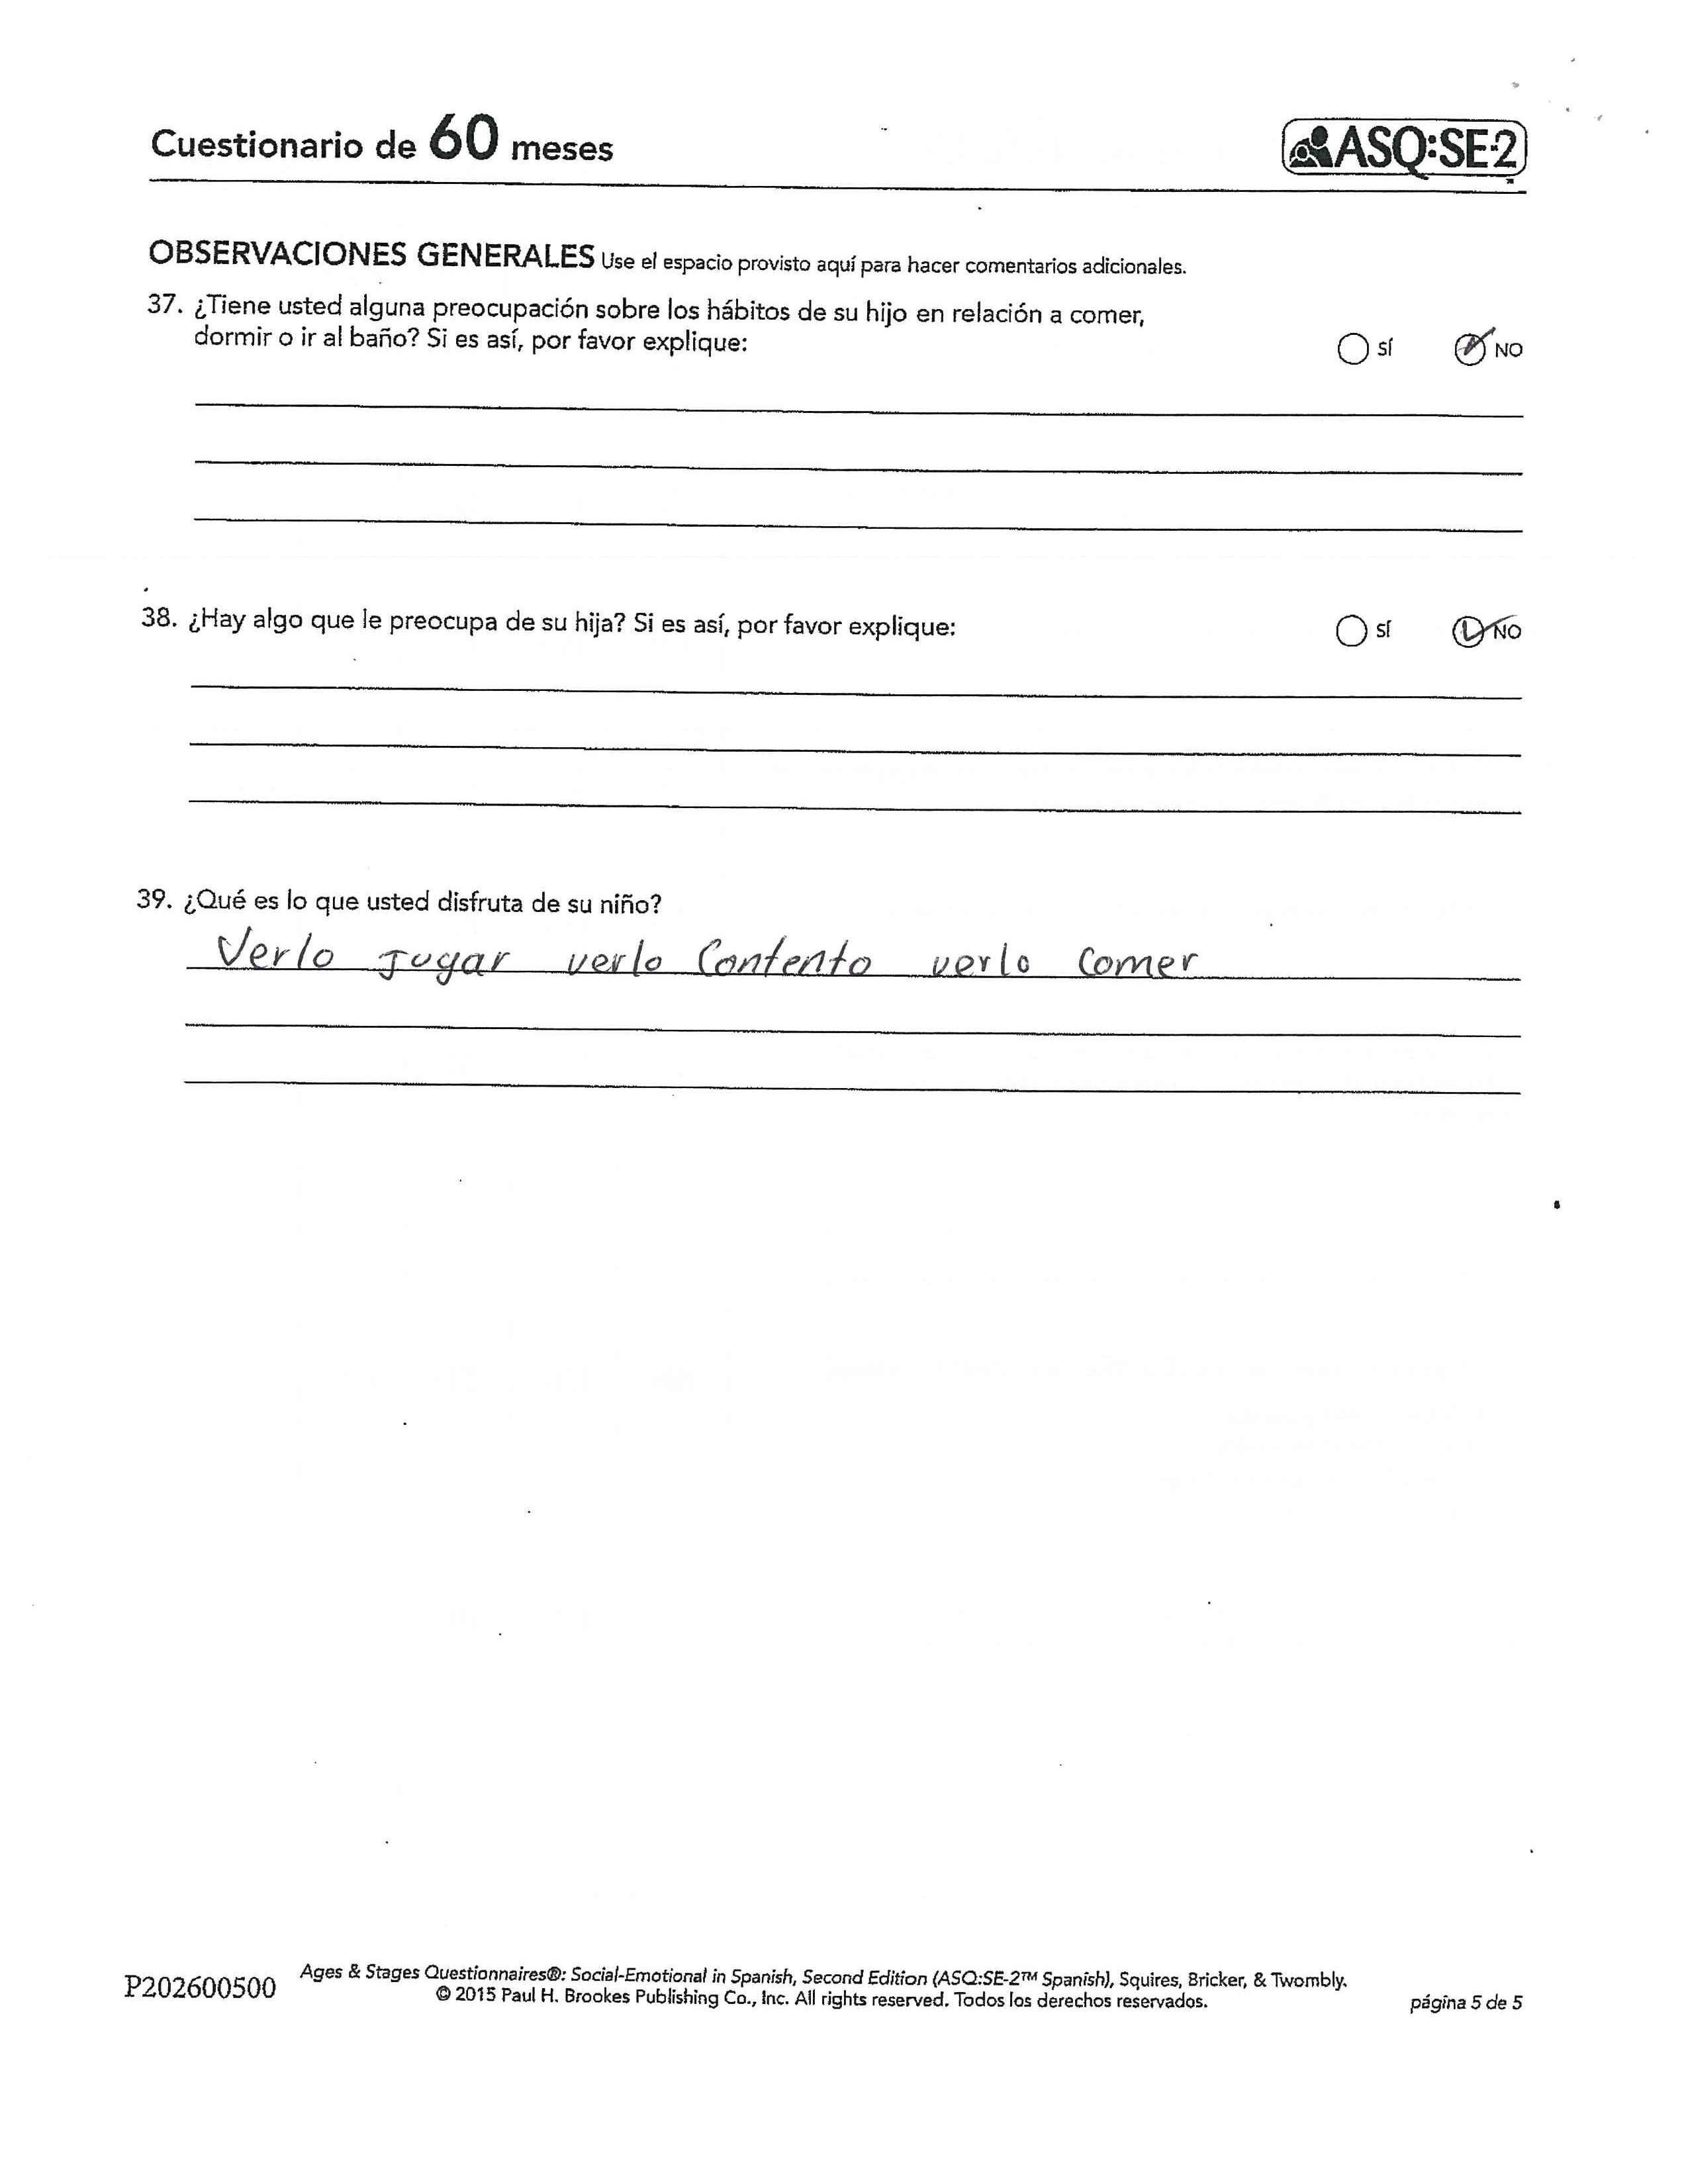 Cuestionario de 60 meses
ASQ:SE-2
OBSERVACIONES GENERALES Use el espacio provisto aquí para hacer comentarios adicionales.
37. ¿Tiene usted alguna preocupación sobre los hábitos de su hijo en relación a comer,
dormir o ir al baño? Si es así, por favor explique:
SÍ NO
38. ¿Hay algo que le preocupa de su hija? Si es así, por favor explique: SÍ NO
39. ¿Qué es lo que usted disfruta de su niño?
Verlo Jugar verlo Contento verlo Comer
Ages & Stages Questionnaires®: Social-Emotional in Spanish, Second Edition (ASQ:SE-2™ Spanish), Squires, Bricker, & Twombly.
P202600500 © 2015 Paul H. Brookes Publishing Co., Inc. All rights reserved. Todos los derechos reservados. página 5 de 5